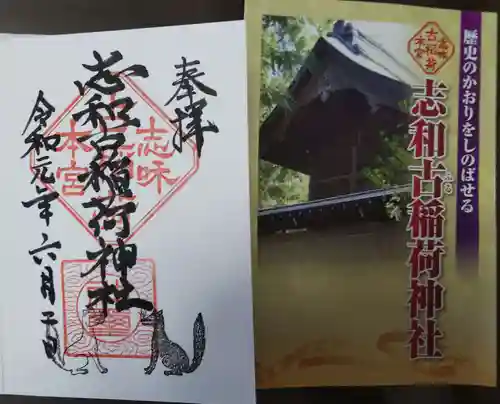 奉拝
志和古稲荷神社
令和元年六月二十日
志味
本宮
歴史のかおりをしのばせる
志味
古稲荷
本宮
志和古稲荷神社
ふる